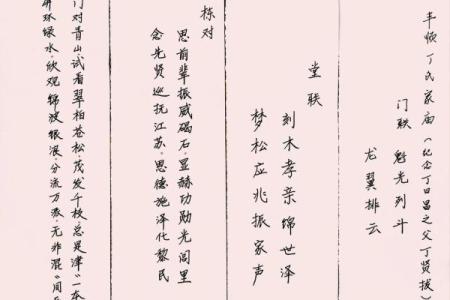 丰顺丁氏家庙（纪念丁日昌之父丁贤拔）
门联 魁光列斗
龙翼排云
堂联
刻木孝亲绵世泽
梦松应兆振家声
栋对
思前辈振威碣石·显赫功勋光阎里
念先贤巡抚江苏·恩德施泽化黎民
门对青山·试看翠柏苍松·茂发千枝·总是津“一本
环绿水·欣观锦波银浪·分流万派·无非混“间